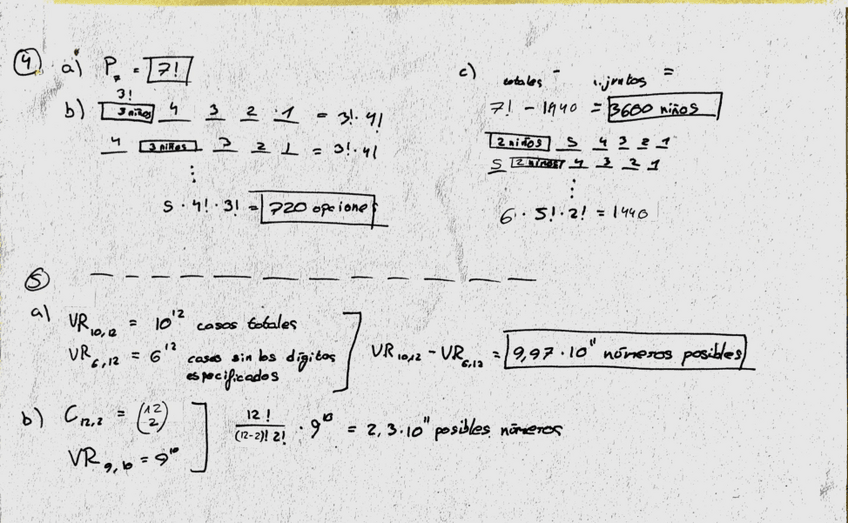 4) a) P₇ = 7!
3!
b) 3 niños 4 3 2 1 = 3! · 4!
4 3 niños 3 2 1 = 3! · 4!
⋮
5 · 4! · 3! = 720 opciones
c) totales - juntos =
7! - 1940 = 3600 niños
2 niños 5 4 3 2 1
5 2 niños 4 3 2 1
⋮
6 · 5! · 2! = 1440
5) _ _ _ _ _ _ _ _ _ _ _ _
a) VR₁₀,₁₂ = 10¹² casos totales
VR₆,₁₂ = 6¹² casos sin los dígitos
especificados
VR₁₀,₁₂ - VR₆,₁₂ = 9,97 · 10¹¹ números posibles
b) C₁₂,₂ = (12 2)
VR₉,₁₀ = 9¹⁰
12! / (12-2)! 2! · 9¹⁰ = 2,3 · 10¹¹ posibles números